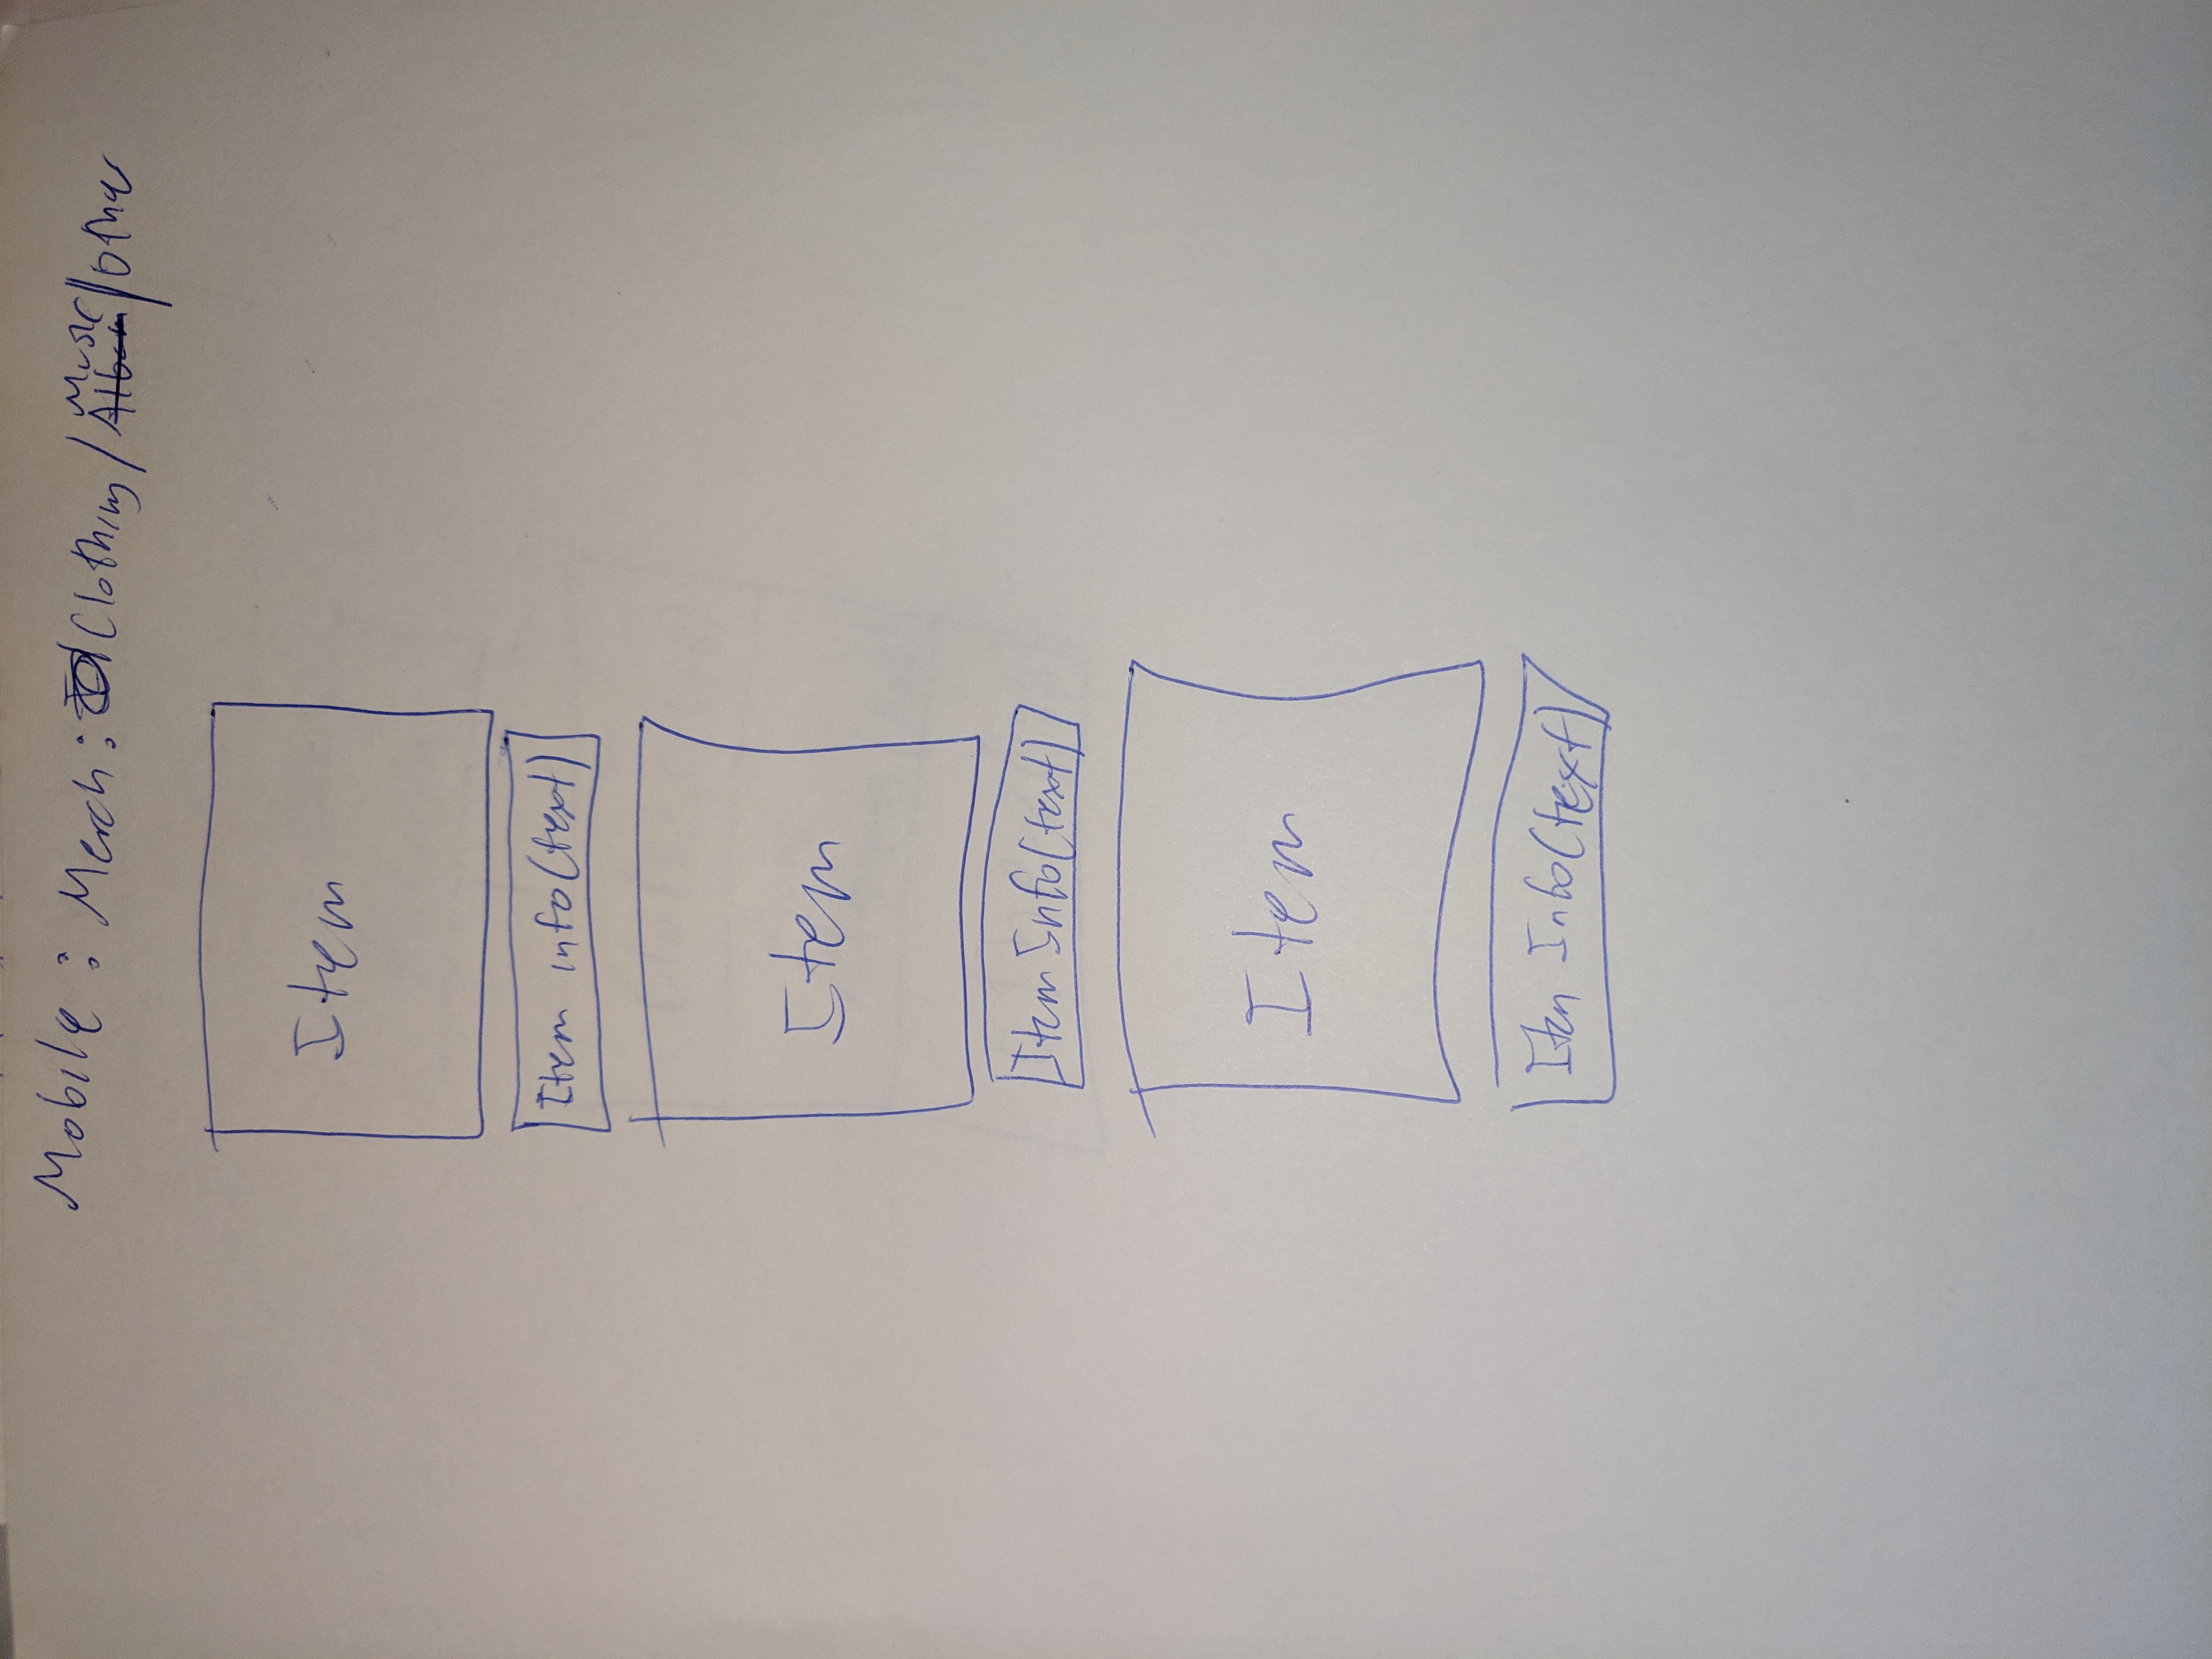 Mobile : Merch : Clothing / Music / Other
Item
Item info (text)
Item
Item Info (text)
Item
Item Info (text)